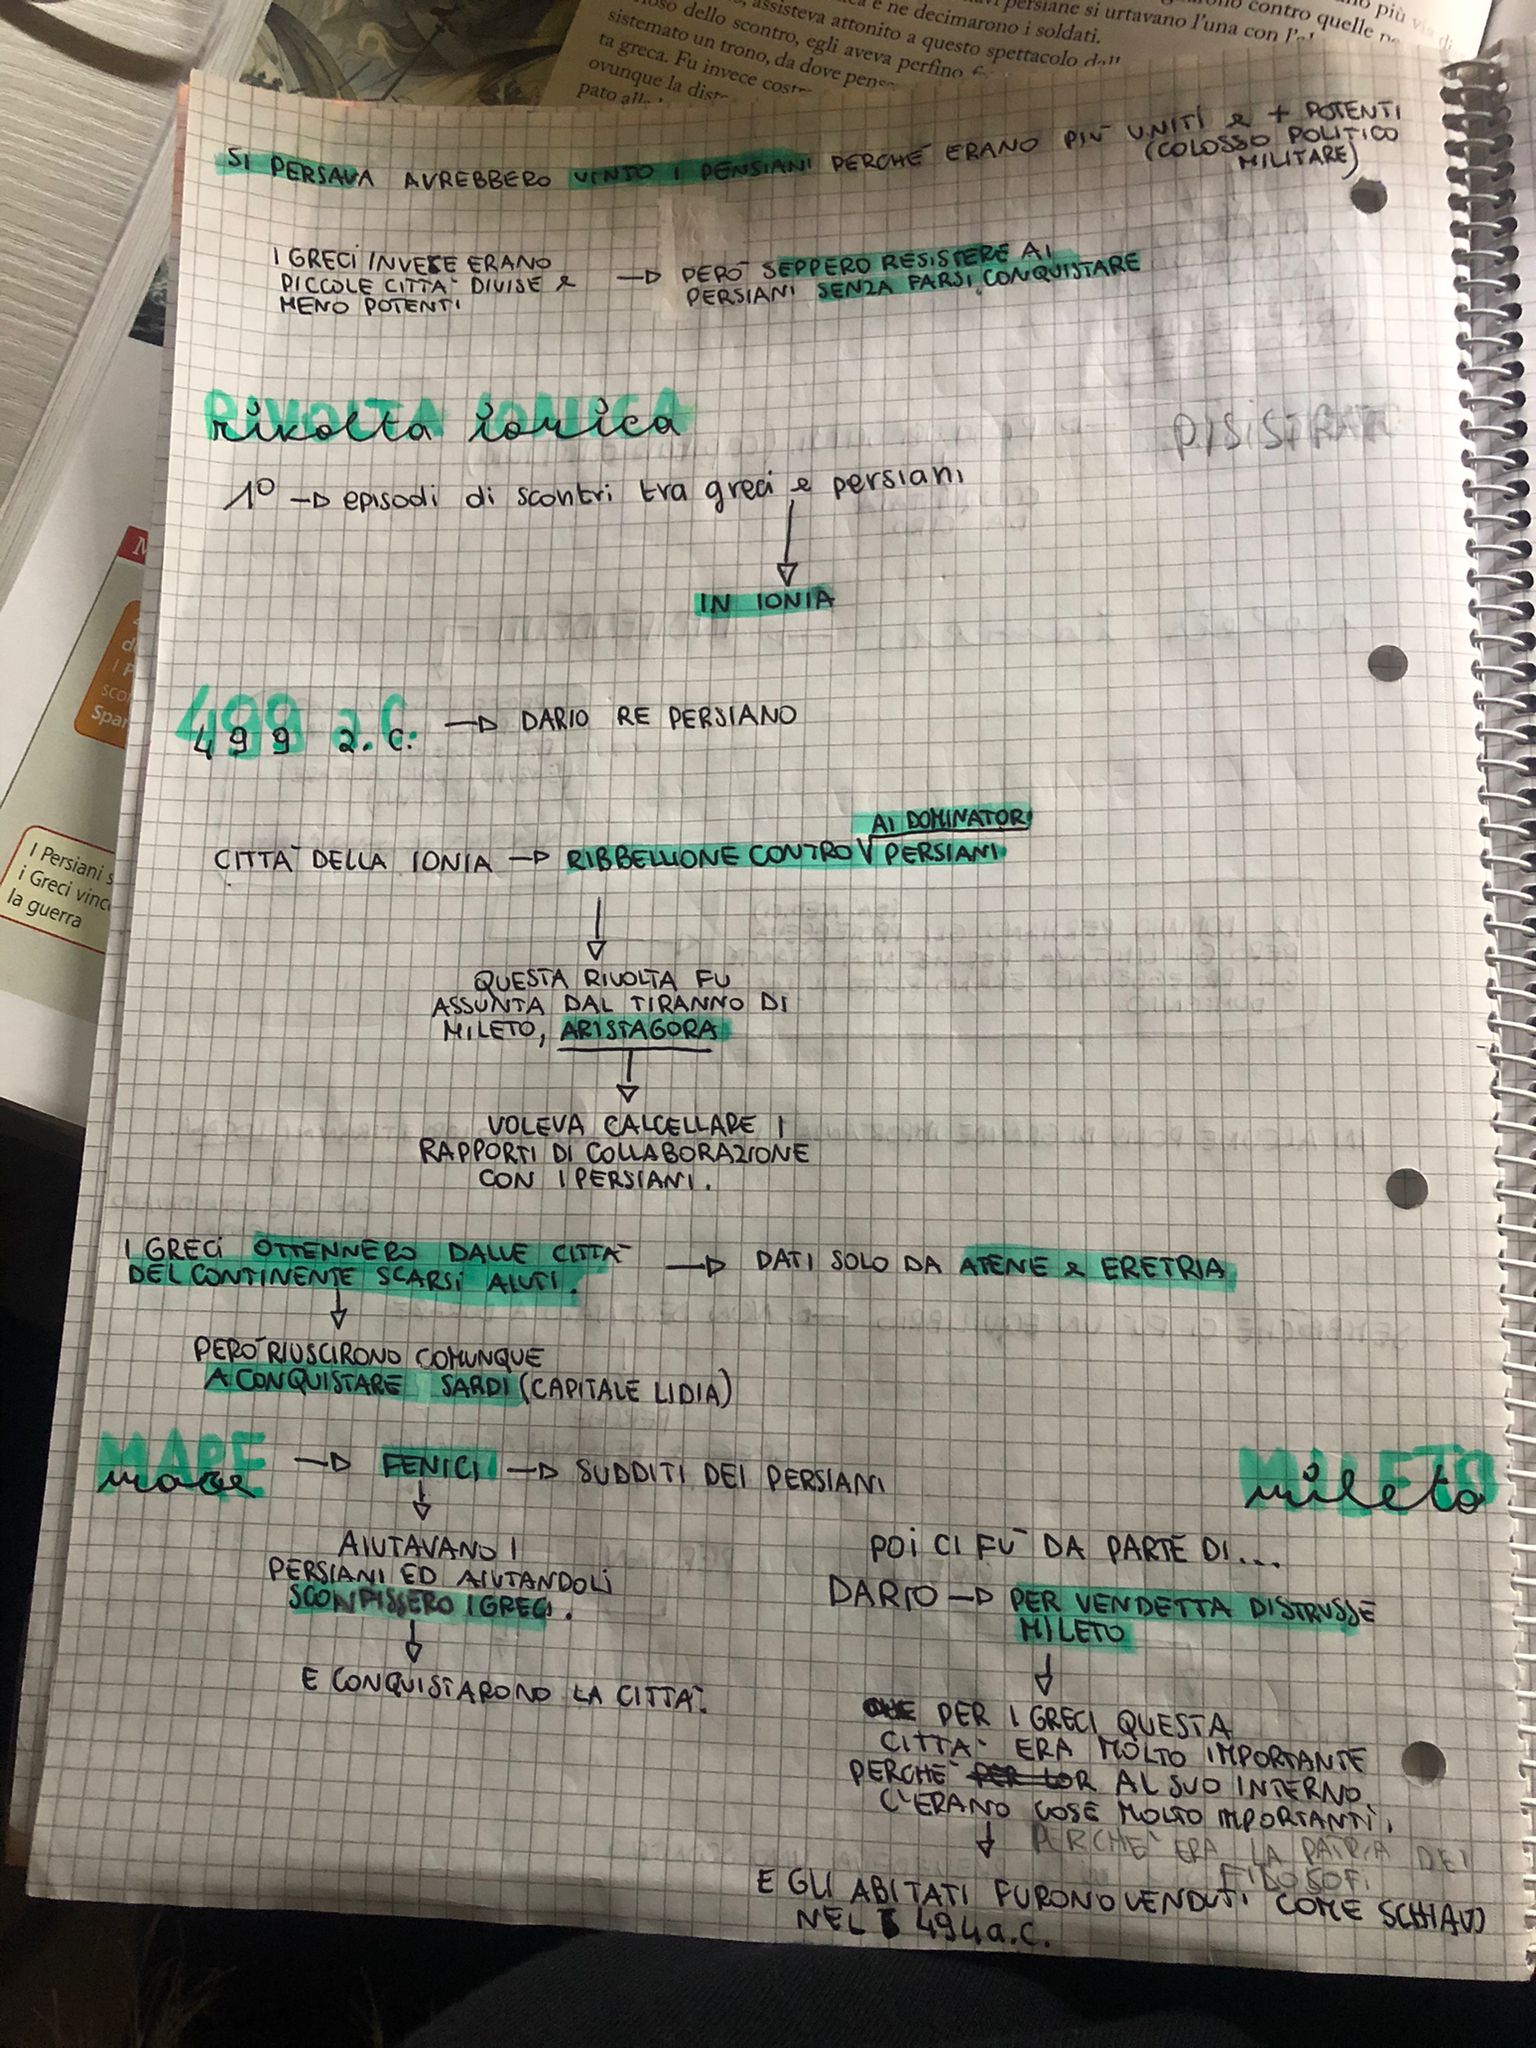 assisteva attonito a questo spettacolo
ne decimarono i soldati.
persiane si urtavano l'una con
contro quelle
più
dello scontro, egli aveva perfino
sistemato un trono, da dove
ta greca. Fu invece
ovunque la
SI PERSAVA AVREBBERO VINTO I PENSIANI PERCHÉ ERANO PIÙ UNITI & + POTENTI
(COLOSSO POLITICO
MILITARE)
I GRECI INVECE ERANO
PICCOLE CITTÀ DIVISE &
MENO POTENTI
→ PERÒ SEPPERO RESISTERE AI
PERSIANI SENZA FARSI CONQUISTARE
RIVOLTA IONICA
rivolta ionica
PISISTRATO
1° → episodi di scontri tra greci e persiani
IN IONIA
499 a.C. → DARIO RE PERSIANO
AI DOMINATORI
CITTÀ DELLA IONIA → RIBBELLIONE CONTRO V PERSIANI
QUESTA RIVOLTA FU
ASSUNTA DAL TIRANNO DI
MILETO, ARISTAGORA
VOLEVA CALCELLARE I
RAPPORTI DI COLLABORAZIONE
CON I PERSIANI.
I GRECI OTTENNERO DALLE CITTÀ
DEL CONTINENTE SCARSI AIUTI.
→ DATI SOLO DA ATENE & ERETRIA
PERÒ RIUSCIRONO COMUNQUE
A CONQUISTARE SARDI (CAPITALE LIDIA)
MARE
mare → FENICI → SUDDITI DEI PERSIANI
AIUTAVANO I
PERSIANI ED AIUTANDOLI
SCONFISSERO I GRECI.
E CONQUISTARONO LA CITTÀ.
MILETO
mileto
POI CI FÙ DA PARTE DI...
DARIO → PER VENDETTA DISTRUSSE
MILETO
PER I GRECI QUESTA
CITTÀ ERA MOLTO IMPORTANTE
PERCHÉ AL SUO INTERNO
C'ERANO COSE MOLTO IMPORTANTI,
PERCHÉ ERA LA PATRIA DEI
FILOSOFI
E GLI ABITATI FURONO VENDUTI COME SCHIAVI
NEL 494 a.C.
I Persiani s
i Greci vinc
la guerra
Spar